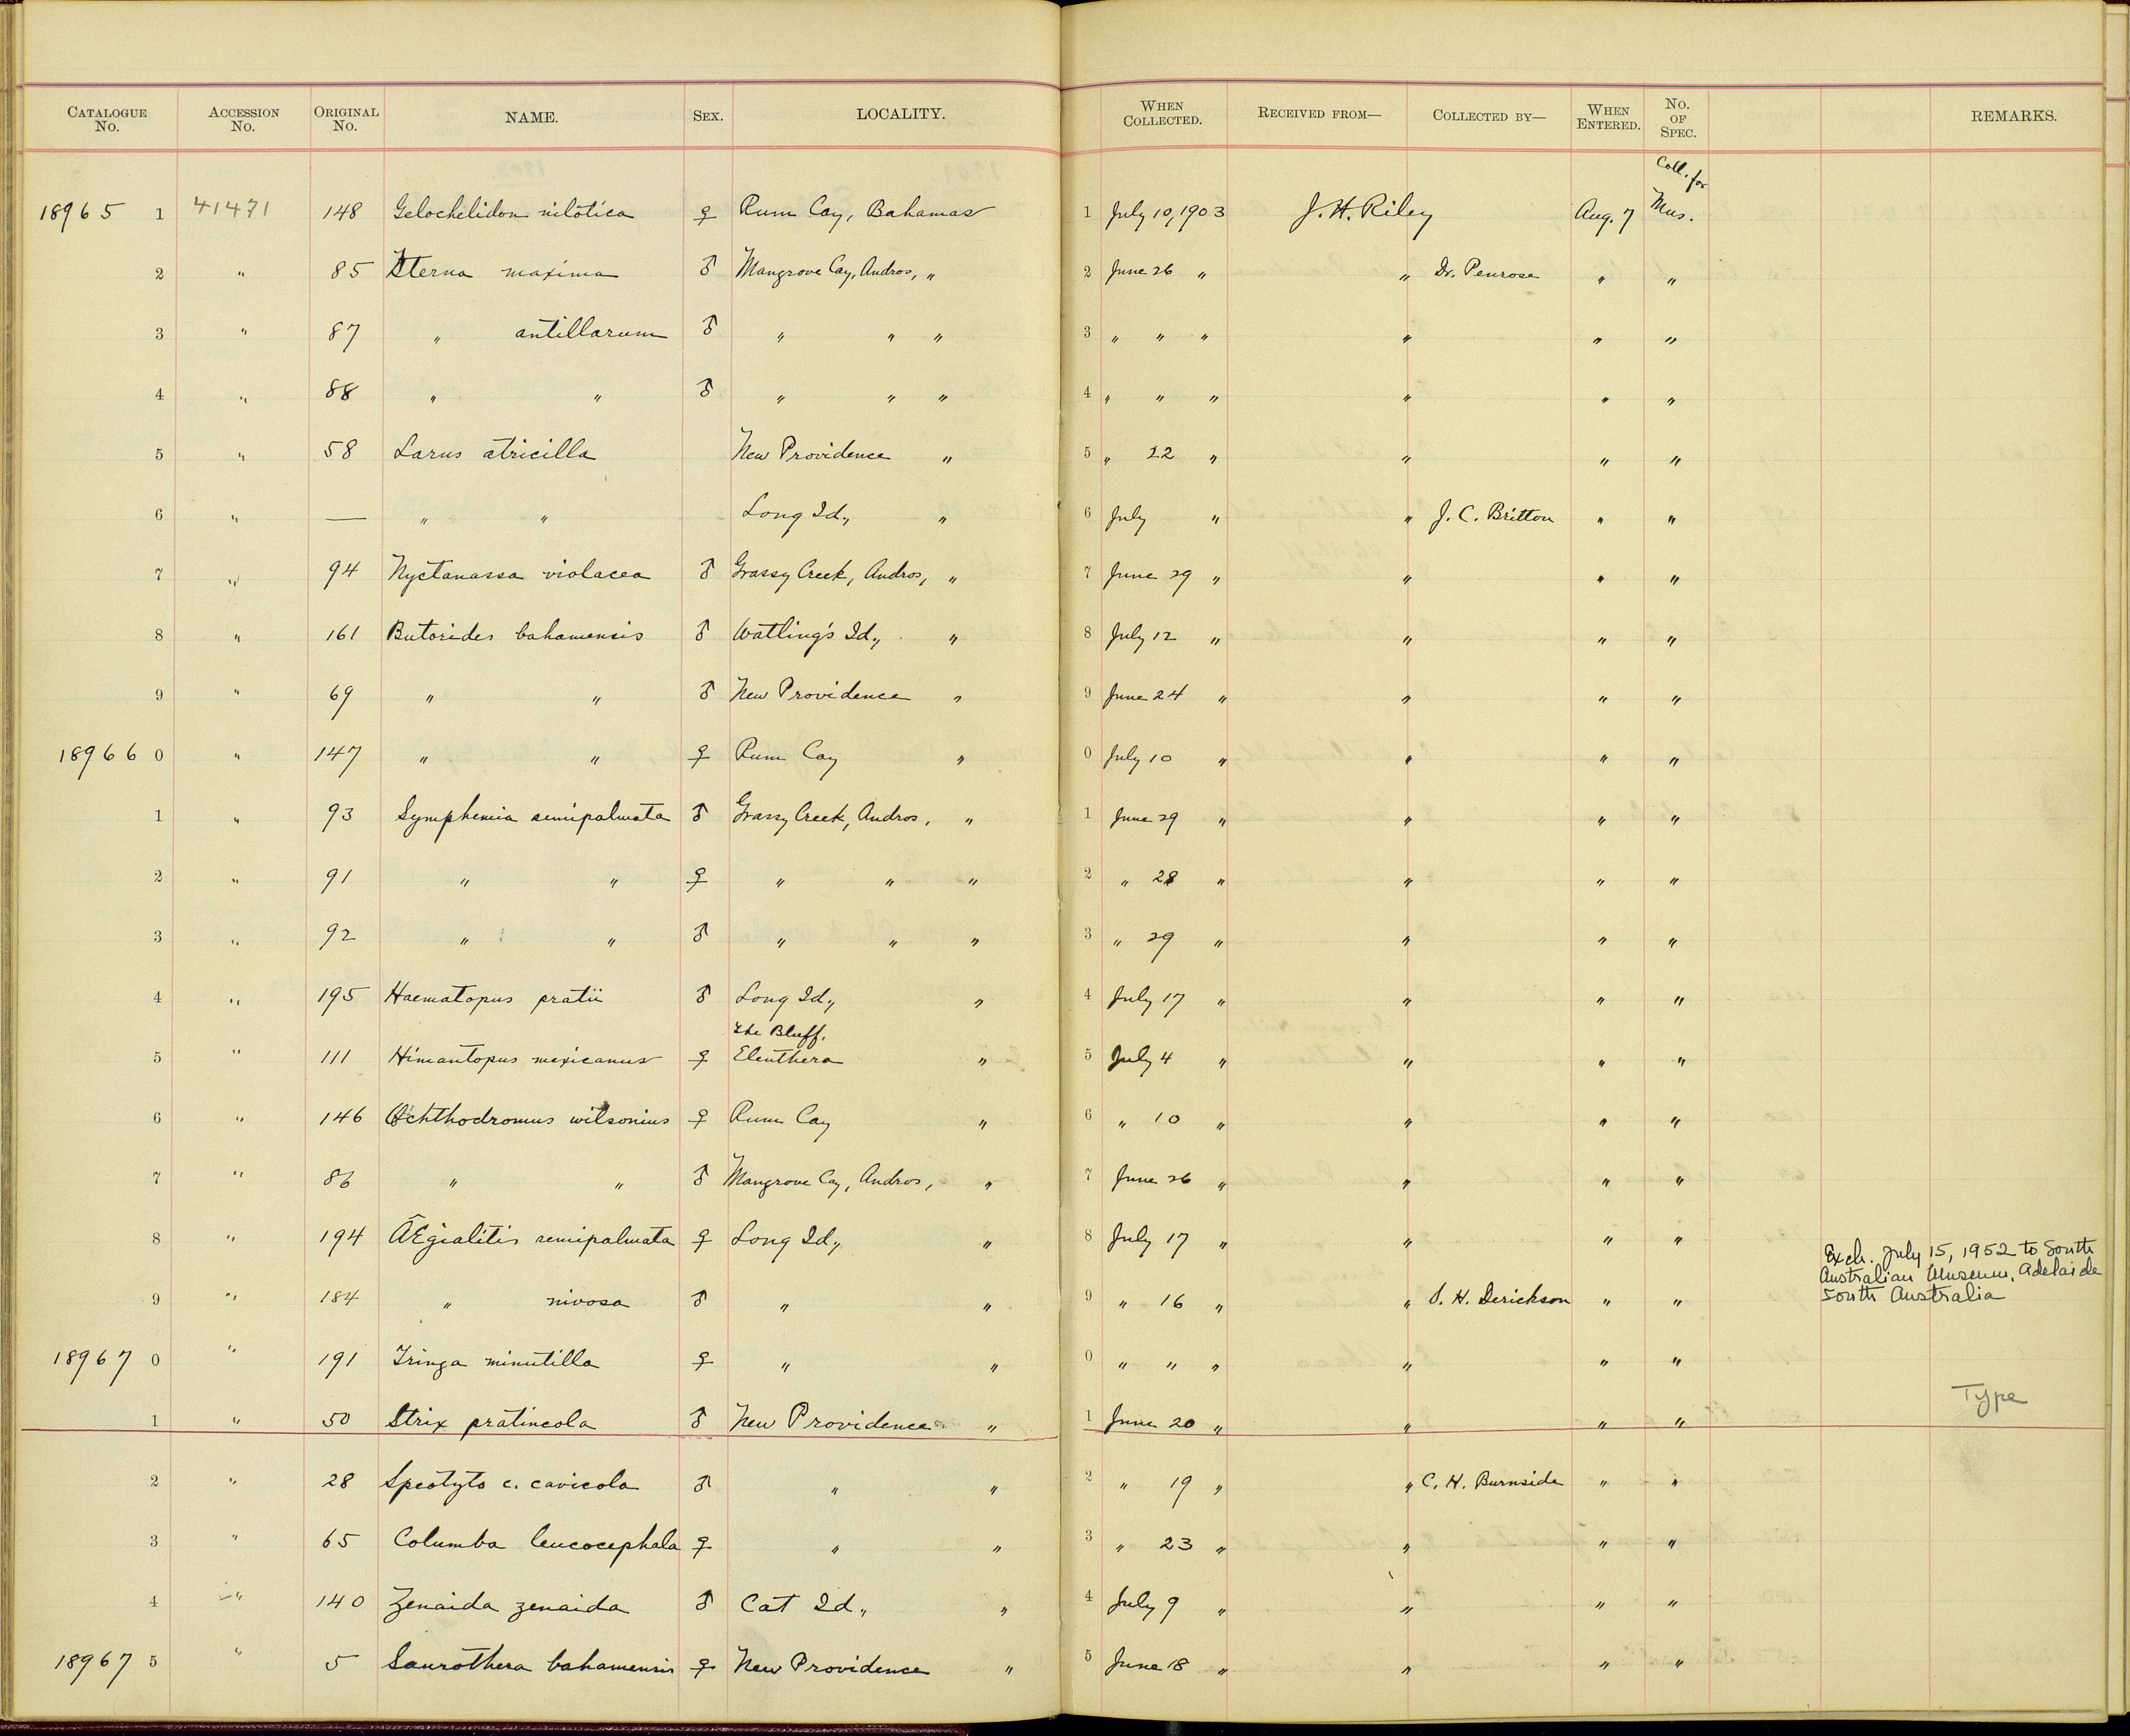 CATALOGUE No. ACCESSION No. ORIGINAL No. NAME. SEX. LOCALITY. WHEN COLLECTED. RECEIVED FROM— COLLECTED BY— WHEN ENTERED. No. OF SPEC. REMARKS.
Coll. for
18965 1 41471 148 Gelochelidon nilotica ♀ Rum Cay, Bahamas 1 July 10, 1903 J. H. Riley Aug. 7 Mus.
2 " 85 Sterna maxima ♂ Mangrove Cay, Andros, " 2 June 26 " " Dr. Penrose " "
3 " 87 " antillarum ♂ " " " 3 " " " " " "
4 " 88 " " ♂ " " " 4 " " " " " "
5 " 58 Larus atricilla New Providence " 5 " 22 " " " "
6 " — " " Long Id., " 6 July " " J. C. Britton " "
7 " 94 Nyctanassa violacea ♂ Grassy Creek, Andros, " 7 June 29 " " " "
8 " 161 Butorides bahamensis ♂ Watling's Id., " 8 July 12 " " " "
9 " 69 " " ♂ New Providence " 9 June 24 " " " "
18966 0 " 147 " " ♀ Rum Cay " 0 July 10 " " " "
1 " 93 Symphemia semipalmata ♂ Grassy Creek, Andros, " 1 June 29 " " " "
2 " 91 " " ♀ " " " 2 " 28 " " " "
3 " 92 " " ♂ " " " 3 " 29 " " " "
4 " 195 Haematopus pratii ♂ Long Id., " 4 July 17 " " " "
The Bluff,
5 " 111 Himantopus mexicanus ♀ Eleuthera " 5 July 4 " " " "
6 " 146 Ochthodromus wilsonius ♀ Rum Cay " 6 " 10 " " " "
7 " 86 " " ♂ Mangrove Cay, Andros, " 7 June 26 " " " "
8 " 194 ÆEgialitis semipalmata ♀ Long Id., " 8 July 17 " " " "
Exch. July 15, 1952 to South
Australian Museum, Adelaide
South Australia
9 " 184 " nivosa ♂ " " 9 " 16 " " S. H. Derickson " "
18967 0 " 191 Tringa minutilla ♀ " " 0 " " " " " "
Type
1 " 50 Strix pratincola ♂ New Providence " 1 June 20 " " " "
2 " 28 Speotyto c. cavicola ♂ " " 2 " 19 " " C. H. Burnside " "
3 " 65 Columba leucocephala ♀ " " 3 " 23 " " " "
4 " 140 Zenaida zenaida ♂ Cat Id., " 4 July 9 " " " "
18967 5 " 5 Saurothera bahamensis ♀ New Providence " 5 June 18 " " " "